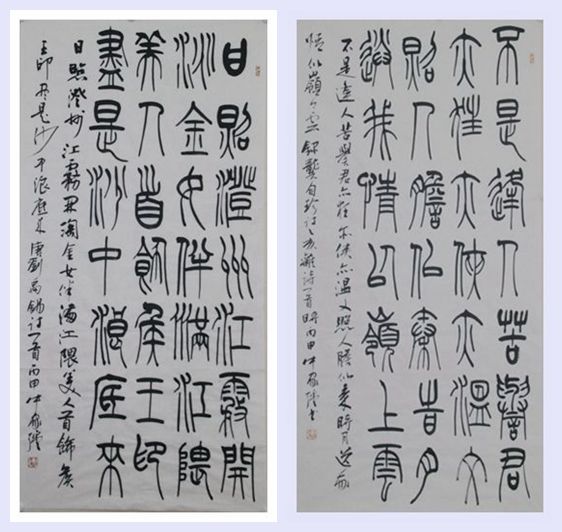 日照澄洲江霧開
淘金女伴滿江隈
美人首飾侯王印
盡是沙中浪底來
日照澄州江霧開淘金女伴滿江隈美人首飾侯
王印盡是沙中浪底來 唐劉禹錫詩一首丙申
不是逢人苦譽君
亦狂亦俠亦溫文
照人膽似秦時月
送我情以嶺上雲
不是逢人苦譽君亦狂亦俠亦溫文照人膽似秦時月送我
情似嶺上雲 錄龔自珍己亥雜詩一首時丙申